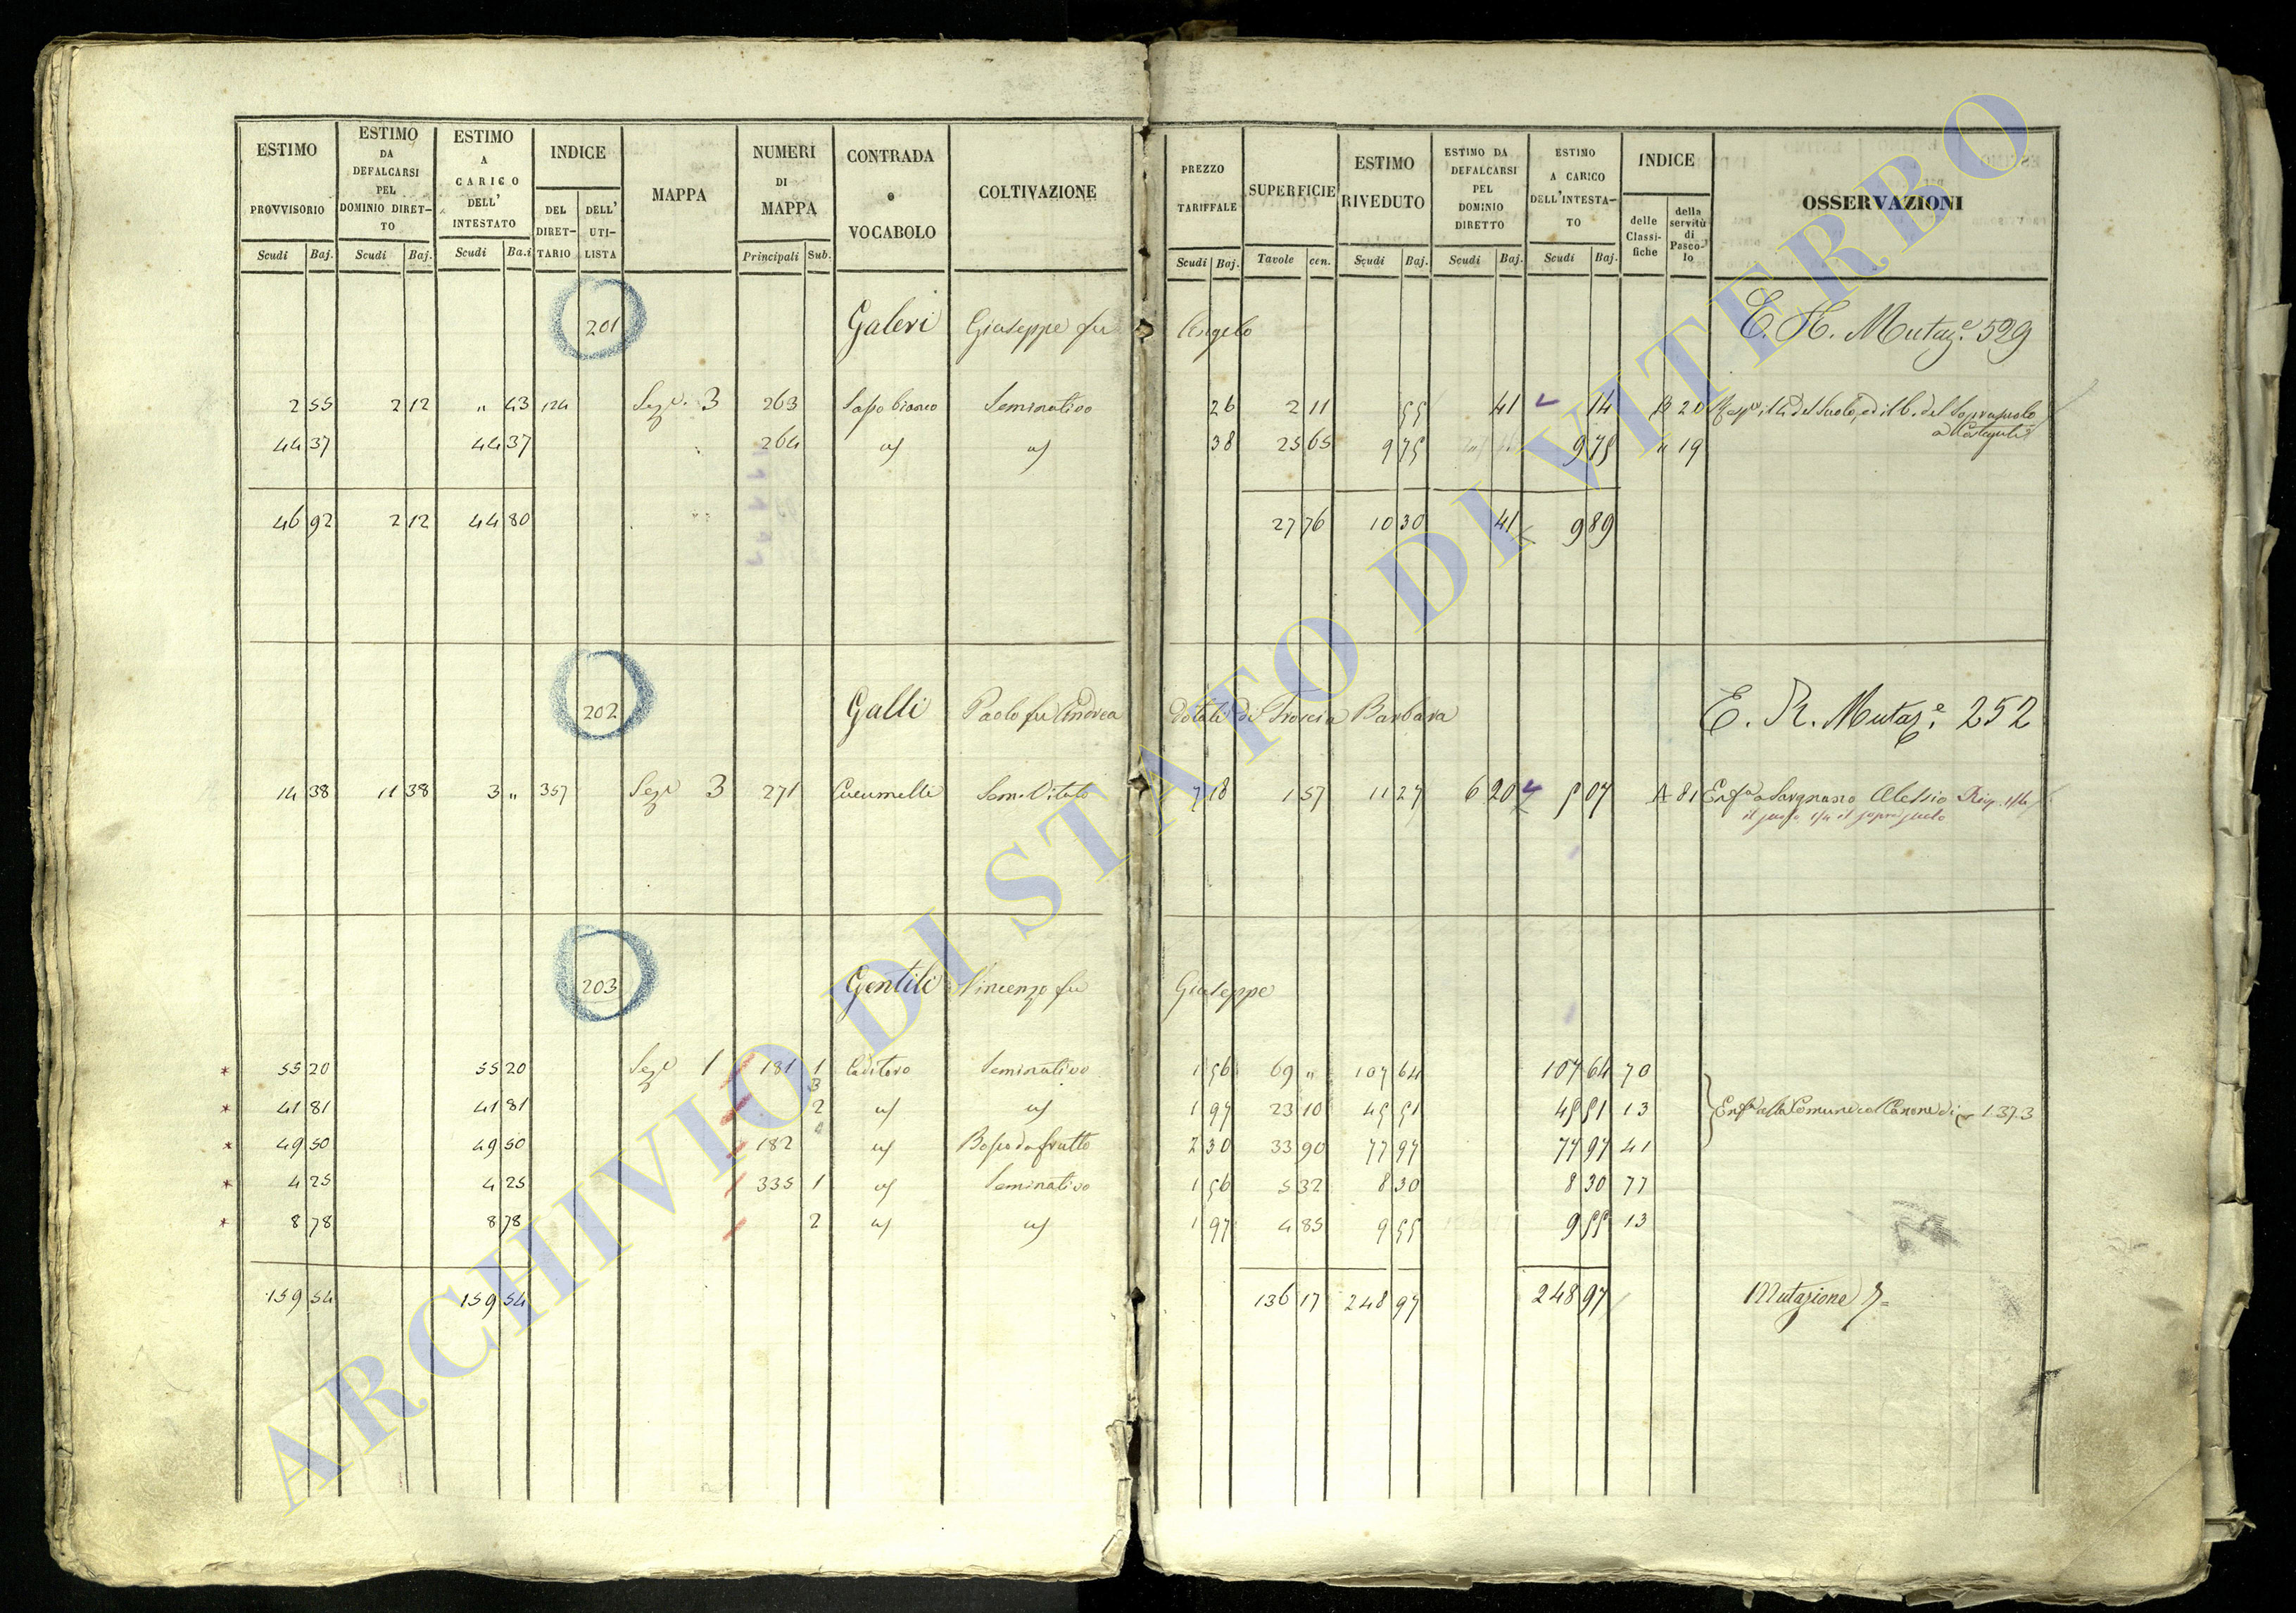 ESTIMO PROVVISORIO Scudi Baj.
ESTIMO DA DEFALCARSI PEL DOMINIO DIRET-TO Scudi Baj.
ESTIMO A CARICO DELL' INTESTATO Scudi Ba.i
INDICE DEL DIRET-TARIO DELL' UTI-LISTA
MAPPA
NUMERI DI MAPPA Principali Sub.
CONTRADA o VOCABOLO
COLTIVAZIONE
PREZZO TARIFFALE Scudi Baj.
SUPERFICIE Tavole cen.
ESTIMO RIVEDUTO Scudi Baj.
ESTIMO DA DEFALCARSI PEL DOMINIO DIRETTO Scudi Baj.
ESTIMO A CARICO DELL'INTESTA-TO Scudi Baj.
INDICE delle Classi-fiche della servitù di Pasco-lo
OSSERVAZIONI
201 Galeri Giuseppe fu Angelo E. H. Mutaz.e 529
2 55 2 12 " 43 124 Sez.e 3 263 Sasso bianco Seminativo 26 2 11 55 41 14 B 20 del Suolo, ed il del Soprasuolo
a
44 37 44 37 264 id id 38 25 65 9 75 9 75 " 19
46 92 2 12 44 80 27 76 10 30 41 9 89
202 Galli Paolo fu Andrea dotali di Troscia Barbara E. R. Mutaz.e 252
14 38 11 38 3 " 357 Sez.e 3 271 Cucumelle Sem. Vitato 7 18 1 57 11 27 6 20 5 07 A 81 Enf.a a Savignano Alessio Risp. 1/4
il suolo 1/4 il soprasuolo
203 Gentili Vincenzo fu Giuseppe
* 55 20 55 20 Sez.e 1 181 1 Seminativo 1 56 69 " 107 64 107 64 70
3
* 41 81 41 81 2 id id 1 97 23 10 45 51 45 51 13 Enf.a alla Comune col Canone di 1.37.3
* 49 50 49 50 182 id Bosco da frutto 2 30 33 90 77 97 77 97 41
* 4 25 4 25 335 1 id Seminativo 1 56 5 32 8 30 8 30 77
* 8 78 8 78 2 id id 1 97 4 85 9 55 9 55 13
159 54 159 54 136 17 248 97 248 97 Mutazione 7=
ARCHIVIO DI STATO DI VITERBO